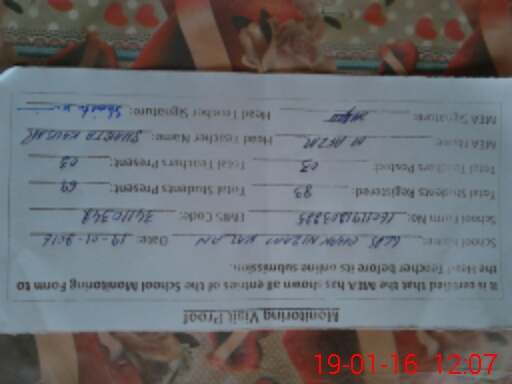 Monitoring Visit Proof
It is certified that the MEA has shown all entries of the School Monitoring Form to
the Head Teacher before its online submission.
School Name: Date: 19-01-2016
School Form No: EMIS Code: 34110348
Total Students Registered: 83 Total Students Present: 69
Total Teachers Posted: 03 Total Teachers Present: 03
MEA Name: Head Teacher Name:
MEA Signature: Head Teacher Signature:
19-01-16 12:07